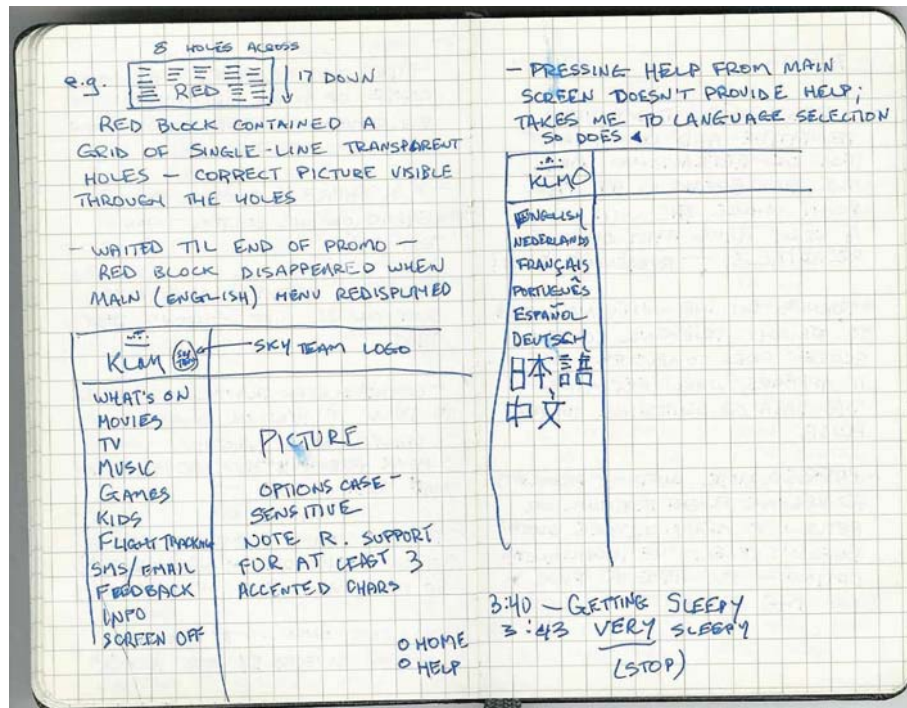 8 HOLES ACROSS
e.g. RED 17 DOWN
RED BLOCK CONTAINED A
GRID OF SINGLE-LINE TRANSPARENT
HOLES – CORRECT PICTURE VISIBLE
THROUGH THE HOLES
– WAITED TIL END OF PROMO –
RED BLOCK DISAPPEARED WHEN
MAIN (ENGLISH) MENU REDISPLAYED
KLM SKY TEAM SKY TEAM LOGO
WHAT'S ON
MOVIES
TV
MUSIC
GAMES
KIDS
FLIGHT TRACKING
SMS/EMAIL
FEEDBACK
INFO
SCREEN OFF
PICTURE
OPTIONS CASE-
SENSITIVE
NOTE R. SUPPORT
FOR AT LEAST 3
ACCENTED CHARS
O HOME
O HELP
– PRESSING HELP FROM MAIN
SCREEN DOESN'T PROVIDE HELP;
TAKES ME TO LANGUAGE SELECTION
SO DOES ◄
KLM
ENGLISH
NEDERLANDS
FRANÇAIS
PORTUGUÊS
ESPAÑOL
DEUTSCH
日本語
中文
3:40 – GETTING SLEEPY
3:43 VERY SLEEPY
(STOP)